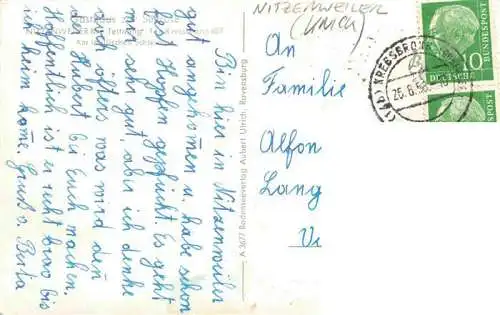 NITZENWEILER
(Ulrich)
Bin hier in Nitzenweiler
gut angekommen u. habe schon
fest Hopfen gepflückt Es geht
mir sehr gut, aber ich denke
oft öfters was wird der
Hubert bei Euch machen.
Hoffentlich ist er recht brav bis
ich heim komme. Gruß v. Berta
A 3677 Bodenseeverlag Aubert Ulrich, Ravensburg
An
Familie
Alfon
Lang
KRESSBRONN
DEUTSCHE
BUNDESPOST
10